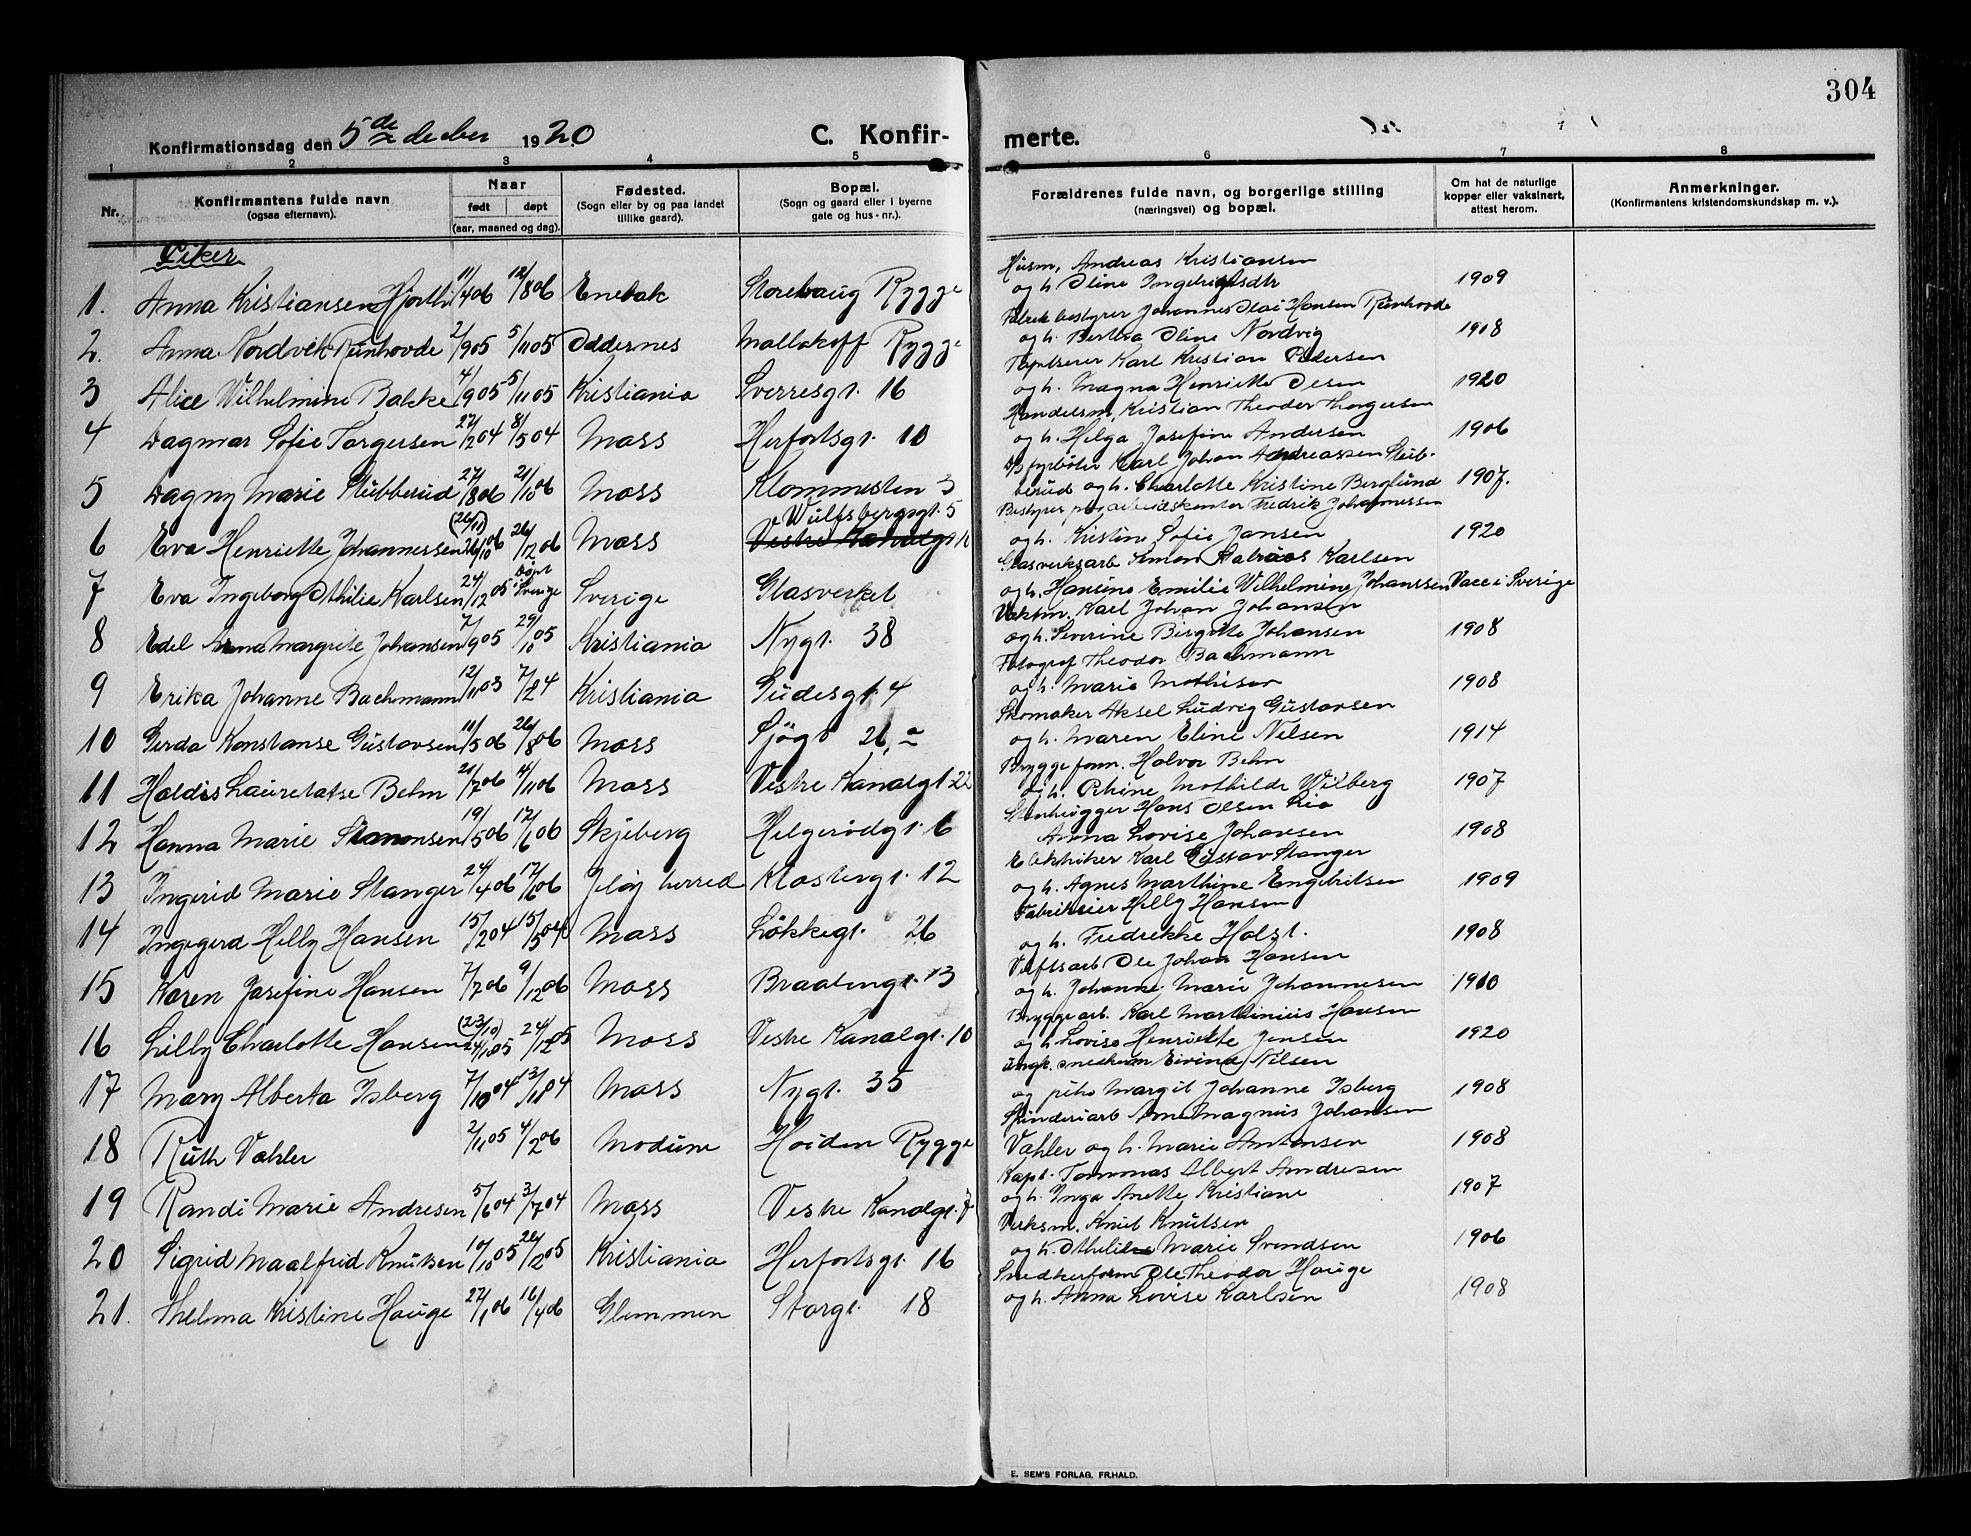 304
Konfirmationsdag den 5de december 1920
C. Konfirmerte.
1 2 3 4 5 6 7 8
Nr.
Konfirmantens fulde navn
(ogsaa efternavn).
Naar
født døpt
(aar, maaned og dag).
Fødested.
(Sogn eller by og paa landet
tillike gaard).
Bopæl.
(Sogn og gaard eller i byerne
gate og hus-nr.).
Forældrenes fulde navn, og borgerlige stilling
(næringsvei) og bopæl.
Om hat de naturlige
kopper eller vaksinert,
attest herom.
Anmerkninger.
(Konfirmantens kristendomskundskap m. v.).
Piker
Husm. Andreas Kristiansen
1. Anna Kristiansen Hjorth 11/4 06 12/8 06 Enebak Storehaug Rygge og h. Oline Ingebrigtsdtr 1909
Fabrik bestyrer Johannes Olai Hansen Runhovde
2. Anna Nordvik Runhovde 2/9 05 5/11 05 Oddernes Mallakoff Rygge og h. Bertha Oline Nordvig 1908
Tapetserer Karl Kristian Pedersen
3 Alice Wilhelmine Bakke 4/9 05 5/11 05 Kristiania Sverresgt. 16 og h. Magna Henriette Olsen 1920
Handelsm. Kristian Theodor Thorgersen
4 Dagmar Sofie Torgersen 27/2 04 8/5 04 Moss Herfortsgt. 10 og h. Helga Josefine Andersen 1906
D/S fyrbøter Karl Johan Andreassen Stub-
5 Dagny Marie Stubberud 27/8 06 21/10 06 Moss Klommesten 3 berud og h. Charlotte Kristine Berglund 1907.
(26/11) v Wulfsbergsgt. 5 Bestyrer paa arbeidskontor Fredrik Johannessen
6 Eva Henriette Johannessen 26/10 06 26/12 06 Moss Vestre Kanalgt 10 og h. Kristine Sofie Jansen 1920
Glasverksarb Simon Karlsen
7 Eva Ingeborg Othilie Karlsen 24/12 05 døpt i Sverige Sverige Glasverket og h. Hansine Emilie Wilhelmine Johanssen Vacc i Sverige
Verksm. Karl Johan Johansen
8 Edel Anna Margrete Johansen 7/9 05 29/10 05 Kristiania Nygt. 38 og h. Severine Birgitte Johansen 1908
Fotograf Theodor Bachmann
9 Erika Johanne Bachmann 12/11 03 7/2 4 Kristiania Gudesgt. 4 og h. Marie Mathisen 1908
Skomaker Aksel Ludvig Gustavsen
10 Gerda Konstanse Gustavsen 11/5 06 26/8 06 Moss Sjøgt 26, a og h. Maren Eline Nilsen 1914
Bryggeform. Halvor Behn
11 Haldis Lauretatse Behn 21/7 06 4/11 06 Moss Vestre Kanalgt 22 og h. Mathilde Wilberg 1907
Stenhugger Hans Olsen
12 Hanna Marie 19/5 06 17/6 06 Skjeberg Helgerødgt. 6 Anna Lovise Johansen 1908
Elektriker Karl Gustav Stanger
13 Ingerid Marie Stanger 24/4 06 17/6 06 Jeløy herred Klostergt. 12 og h. Agnes Marthine Engebritsen 1909
Fabrikeier Helly Hansen
14 Ingegerd Helly Hansen 15/2 04 15/5 04 Moss Løkkegt. 26 og h. Fredrekke Holst. 1908
Verftsarb Ole Johan Hansen
15 Karen Josefine Hansen 7/7 06 9/12 06 Moss Braatengt. 13 og h. Johanne Marie Johannesen 1910
(23/10) Bryggearb. Karl Marthinius Hansen
16 Lilly Charlotte Hansen 24/10 05 24/12 05 Moss Vestre Kanalgt. 10 og h. Lovise Henriette Jensen 1920
ungk. snedkersv Eivind Nilsen
17 Mary Alberta Isberg 7/10 04 13/11 04 Moss Nygt. 35 og pike Margit Johanne Isberg 1908
Spinderiarb Arne Magnus Johansen
18 Ruth Vahler 2/11 05 4/2 06 Modum Høiden Rygge Vahler og h. Marie Antonsen 1908
Kapt. Tommas Albert Andresen
19 Randi Marie Andresen 5/6 04 3/7 04 Moss Vestre Kanalgt. 7 og h. Inga Anette Kristiane 1907
Verksm. Knut Knutsen
20 Sigrid Maalfrid Knutsen 10/10 05 26/12 05 Kristiania Herfortsgt. 16 og h. Othilie Marie Svendsen 1906
Snedkerform Ole Theodor Hauge
21. Thelma Kristine Hauge 27/1 06 16/4 06 Glemmen Storgt. 18 og h. Anna Lovise Karlsen 1908
E. SEM'S FORLAG, FR.HALD.